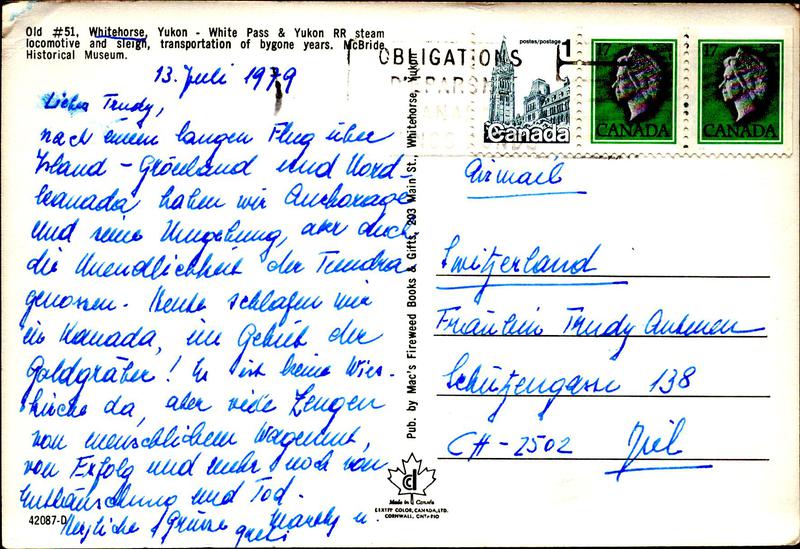 Old #51, Whitehorse, Yukon - White Pass & Yukon RR steam
locomotive and sleigh, transportation of bygone years. McBride
Historical Museum.
13. Juli 1979
Liebes Trudy,
nach einem langen Flug über
Island - Grönland und Nord-
kanada haben wir Anchorage
und seine Umgebung, aber auch
die Unendlichkeit der Tundra
genossen. Heute schlafen wir
in Kanada, im Gebiet der
Goldgräber! Es ist keine Wies-
kirche da, aber viele Zeugen
von menschlichem Wagemut,
von Erfolg und mehr noch von
Enttäuschung und Tod.
Herzliche Grüsse
42087-D
Pub. by Mac's Fireweed Books & Gifts, 203 Main St., Whitehorse, Yukon
Made in Canada
CORNWALL, ONTARIO
OBLIGATIONS
postes/postage
1
Canada
17
CANADA
17
CANADA
Airmail
Switzerland
Fräulein Trudy
Schützengasse 138
CH-2502 Biel